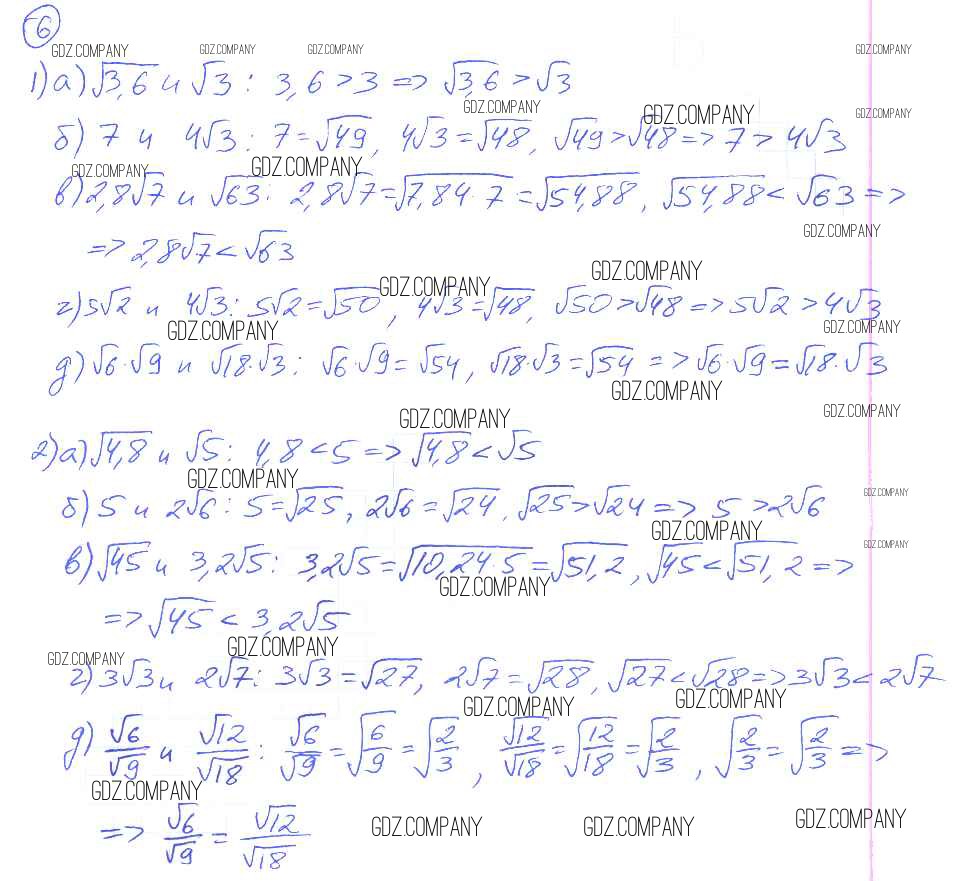 6
GDZ.COMPANY GDZ.COMPANY GDZ.COMPANY GDZ.COMPANY
1) а) √3,6 и √3 : 3,6 > 3 => √3,6 > √3
GDZ.COMPANY GDZ.COMPANY GDZ.COMPANY
б) 7 и 4√3 : 7 = √49, 4√3 = √48, √49 > √48 => 7 > 4√3
GDZ.COMPANY GDZ.COMPANY
в) 2,8√7 и √63 : 2,8√7 = √7,84·7 = √54,88, √54,88 < √63 =>
=> 2,8√7 < √63
GDZ.COMPANY
GDZ.COMPANY GDZ.COMPANY
г) 5√2 и 4√3 : 5√2 = √50, 4√3 = √48, √50 > √48 => 5√2 > 4√3
GDZ.COMPANY GDZ.COMPANY
д) √6·√9 и √18·√3 : √6·√9 = √54, √18·√3 = √54 => √6·√9 = √18·√3
GDZ.COMPANY
GDZ.COMPANY GDZ.COMPANY
2) а) √4,8 и √5 : 4,8 < 5 => √4,8 < √5
GDZ.COMPANY GDZ.COMPANY
б) 5 и 2√6 : 5 = √25, 2√6 = √24, √25 > √24 => 5 > 2√6
GDZ.COMPANY GDZ.COMPANY
в) √45 и 3,2√5 : 3,2√5 = √10,24·5 = √51,2, √45 < √51,2 =>
GDZ.COMPANY
=> √45 < 3,2√5
GDZ.COMPANY GDZ.COMPANY
г) 3√3 и 2√7 : 3√3 = √27, 2√7 = √28, √27 < √28 => 3√3 < 2√7
GDZ.COMPANY GDZ.COMPANY
д) √6/√9 и √12/√18 : √6/√9 = √6/9 = √2/3, √12/√18 = √12/18 = √2/3, √2/3 = √2/3 =>
GDZ.COMPANY
=> √6/√9 = √12/√18
GDZ.COMPANY GDZ.COMPANY GDZ.COMPANY